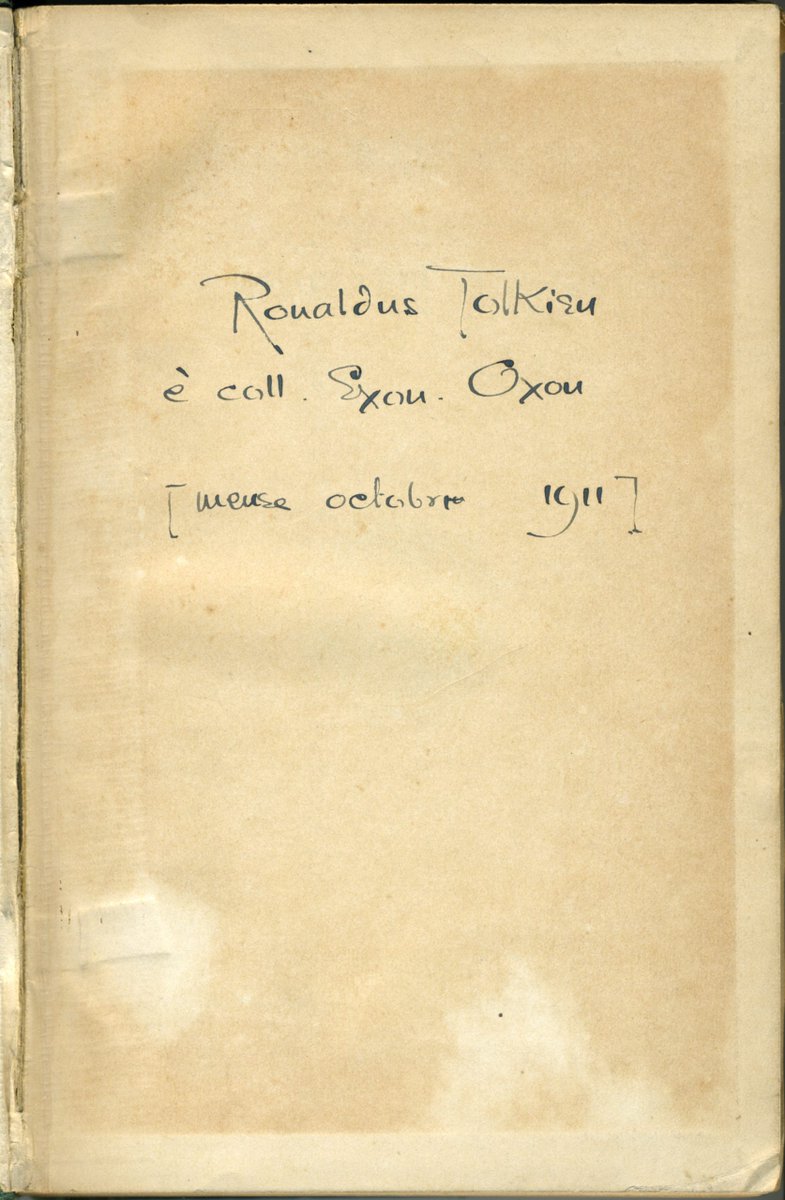 Ronaldus Tolkien
è coll. Exon. Oxon
[mense octobris 1911]